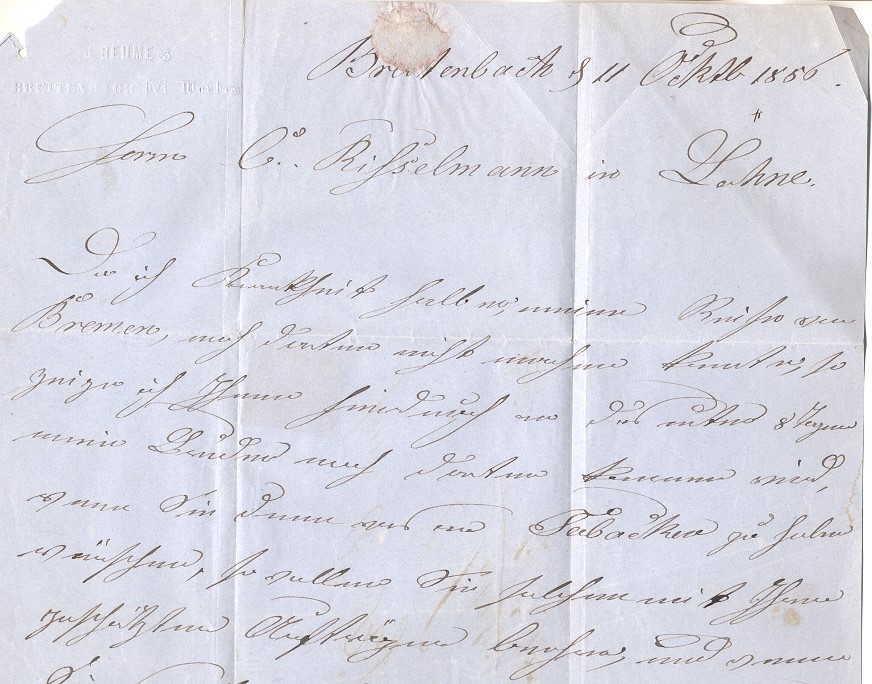 J REUME
BREITENBACH bei Worbis
Breitenbach d 11 Oktb 1856.
Herrn C. Risselmann in Lohne.
Da ich Krankheit halber, meine Reise von
Bremen, nach dorten nicht machen konnte, so
zeige ich Ihnen hierdurch an das unter 8 Tagen
mein Bruder nach dorten kommen wird,
wenn Sie dann was an Tabacken zu haben
wünschen, so wollen Sie selben mit Ihren
geschätzten Aufträgen beehren, und wenn